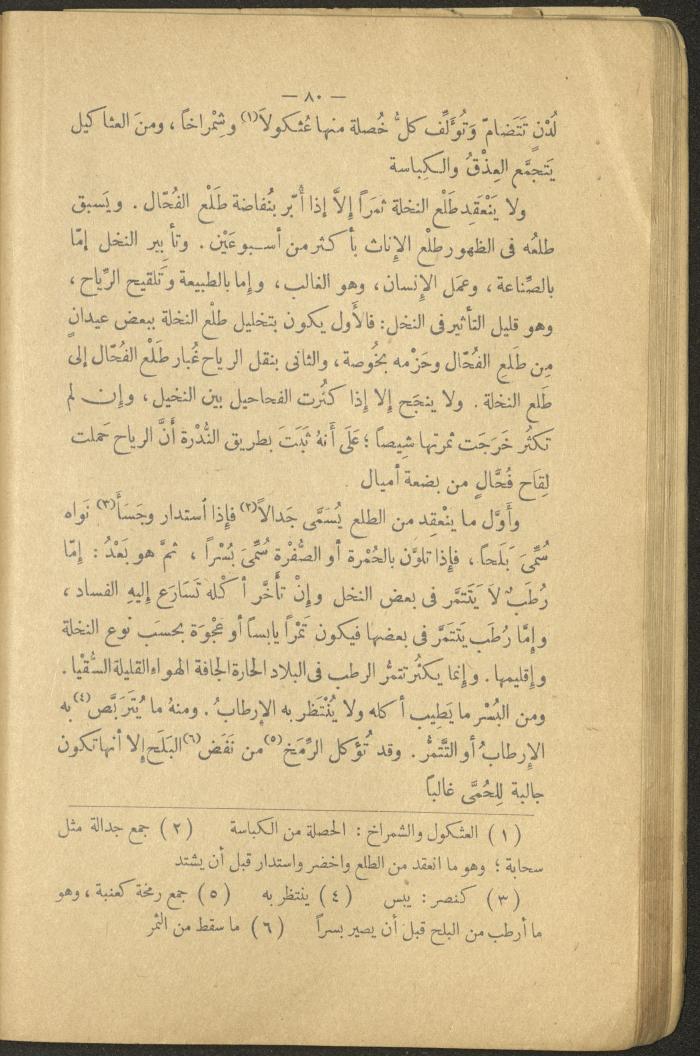 — ٨٠ —
لُدْنٍ تَتَضامّ وَتُؤَلِّف كلُّ خُصلة منها عُثكولاً (١) وشِمْراخاً ، ومنَ العثاكيل
يَتجمَّع العِذْقُ والكِباسة
ولا يَنْعَقِد طَلْع النخلة ثمَرَاً إلاَّ إذا أُبّر بنُفاضة طَلْع الفُحّال . ويَسبق
طلعُه فى الظهور طلْع الإناث بأكثر من أسبوعَيْن . وتأبير النخل إمّا
بالصِّناعة ، وعمَل الإنسان، وهو الغالب ، وإما بالطبيعة وتَلقيح الرِّياح ،
وهو قليل التأثير فى النخل : فالأَول يكون بتخليل طلْع النخلة ببعض عيدانٍ
مِن طَلع الفُحّال وحَزْمه بخُوصة، والثانى بنقل الرياح غُبار طَلْع الفُحّال إلى
طَلع النخلة . ولا ينجَح إلا إذا كثُرت الفحاحيل بين النخيل ، وإن لم
تكثُر خَرَجَت ثمرتها شِيصاً ؛ عَلَى أَنهُ ثَبَتَ بطريق النُّدْرة أنَّ الرياح حَملت
لِقاح فُحَّالٍ من بضعة أميال
وأَوَّل ما ينْعقِد من الطلع يُسَمَّى جَدالاً (٢) فإذا ٱستدار وجَسَأَ (٣) نَواه
سُمِّىَ بَلَحاً ، فإذا تلوَّن بالحُمْرة أو الصُّفْرة سُمِّىَ بُسْراً ، ثمَّ هو بَعْدُ : إمّا
رُطَبٌ لاَ يَتَتمَّر فى بعض النخل وإنْ تأَخَّر أكْله تَسَارَع إليهِ الفساد ،
وإمَّا رُطَب يَتَتمَّر فى بعضها فيكون تَمْراً يابساً أو عَجْوَة بحسَب نوع النخلة
وإقليمها . وإنما يكثُر تتمُّر الرطب فى البلاد الحارة الجافة الهواء القليلة السُّقْيا .
ومن البُسْر ما يَطِيب أكله ولا يُنْتَظر به الإرطابُ . ومنهُ ما يُتَرَبَّص (٤) به
الإرطابُ أو التَّتمُّر . وقد تُؤكل الرِّمَخ (٥) من نَفَض (٦) البَلَح إلا أنها تكون
جالبة لِلحُمَّى غالباً
(١) العثكول والشمراخ : الخصلة من الكباسة (٢) جمع جدالة مثل
سحابة ؛ وهو ما انعقد من الطلع واخضر واستدار قبل أن يشتد
(٣) كنصر : يبس (٤) ينتظر به (٥) جمع رمخة كعنبة ، وهو
ما أرطب من البلح قبل أن يصير بسراً (٦) ما سقط من الثمر